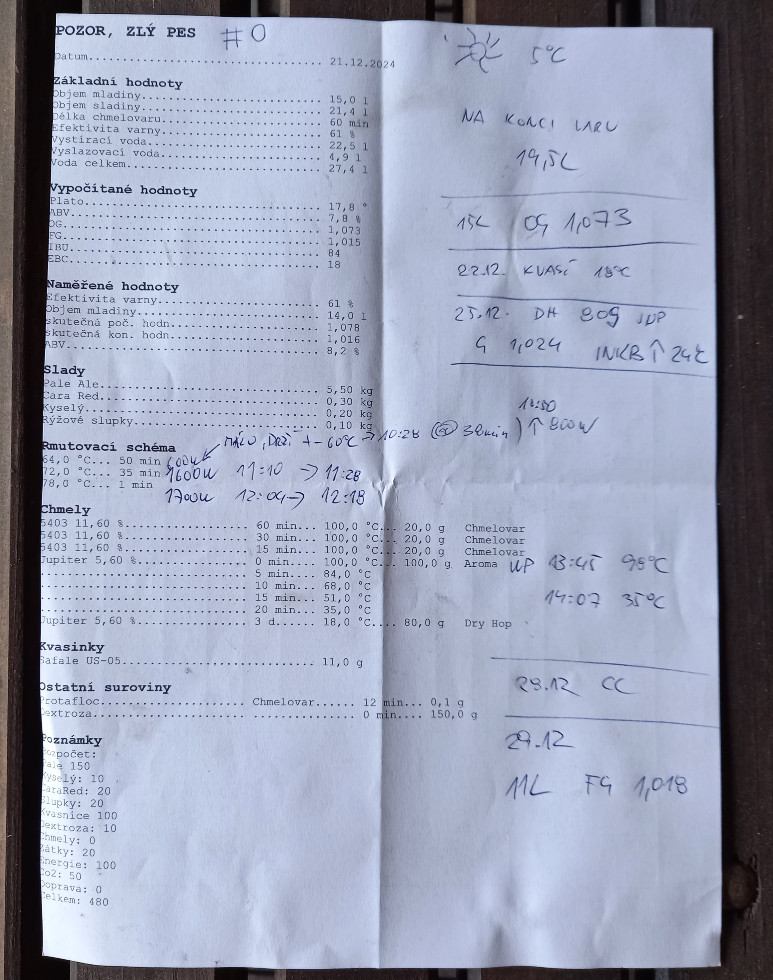 POZOR, ZLÝ PES #0
Datum.................................. 21.12.2024
Základní hodnoty
Objem mladiny.......................... 15,0 l
Objem sladiny.......................... 21,4 l
Délka chmelovaru....................... 60 min
Efektivita varny....................... 61 %
Vystírací voda......................... 22,5 l
Vyslazovací voda....................... 4,9 l
Voda celkem............................ 27,4 l
Vypočítané hodnoty
Plato.................................. 17,8 °
ABV.................................... 7,8 %
OG..................................... 1,073
FG..................................... 1,015
IBU.................................... 84
EBC.................................... 18
Naměřené hodnoty
Efektivita varny....................... 61 %
Objem mladiny.......................... 14,0 l
skutečná poč. hodn..................... 1,078
skutečná kon. hodn..................... 1,016
ABV.................................... 8,2 %
Slady
Pale Ale............................... 5,50 kg
Cara Red............................... 0,30 kg
Kyselý................................. 0,20 kg
Rýžové slupky.......................... 0,10 kg
Rmutovací schéma
64,0 °C... 50 min 600W MÁLO, DRŽÍ +- 60°C → 10:28 (@ 38min) ↑ 800W
72,0 °C... 35 min 1600W 11:10 → 11:28
78,0 °C... 1 min 1700W 12:04 → 12:18
Chmely
5403 11,60 %................... 60 min... 100,0 °C... 20,0 g Chmelovar
5403 11,60 %................... 30 min... 100,0 °C... 20,0 g Chmelovar
5403 11,60 %................... 15 min... 100,0 °C... 20,0 g Chmelovar
Jupiter 5,60 %................. 0 min... 100,0 °C... 100,0 g Aroma WP 13:45 98°C
............................... 5 min... 84,0 °C
............................... 10 min... 68,0 °C
............................... 15 min... 51,0 °C 14:07 35°C
............................... 20 min... 35,0 °C
Jupiter 5,60 %................. 3 d...... 18,0 °C.... 80,0 g Dry Hop
Kvasinky
Safale US-05........................... 11,0 g
Ostatní suroviny
Protafloc...................... Chmelovar...... 12 min... 0,1 g
Dextroza....................... ............... 0 min.... 150,0 g
Poznámky
Rozpočet:
Pale 150
Kyselý: 10
CaraRed: 20
Slupky: 20
Kvasnice 100
Dextroza: 10
Chmely: 0
Zátky: 20
Energie: 100
Co2: 50
Doprava: 0
Celkem: 480
5°C
NA KONCI VARU
19,5L
15L OG 1,073
22.12. KVASÍ 18°C
25.12. DH 80g JUP
G 1,024 INKB ↑ 24°C
28.12 CC
29.12
11L FG 1,018